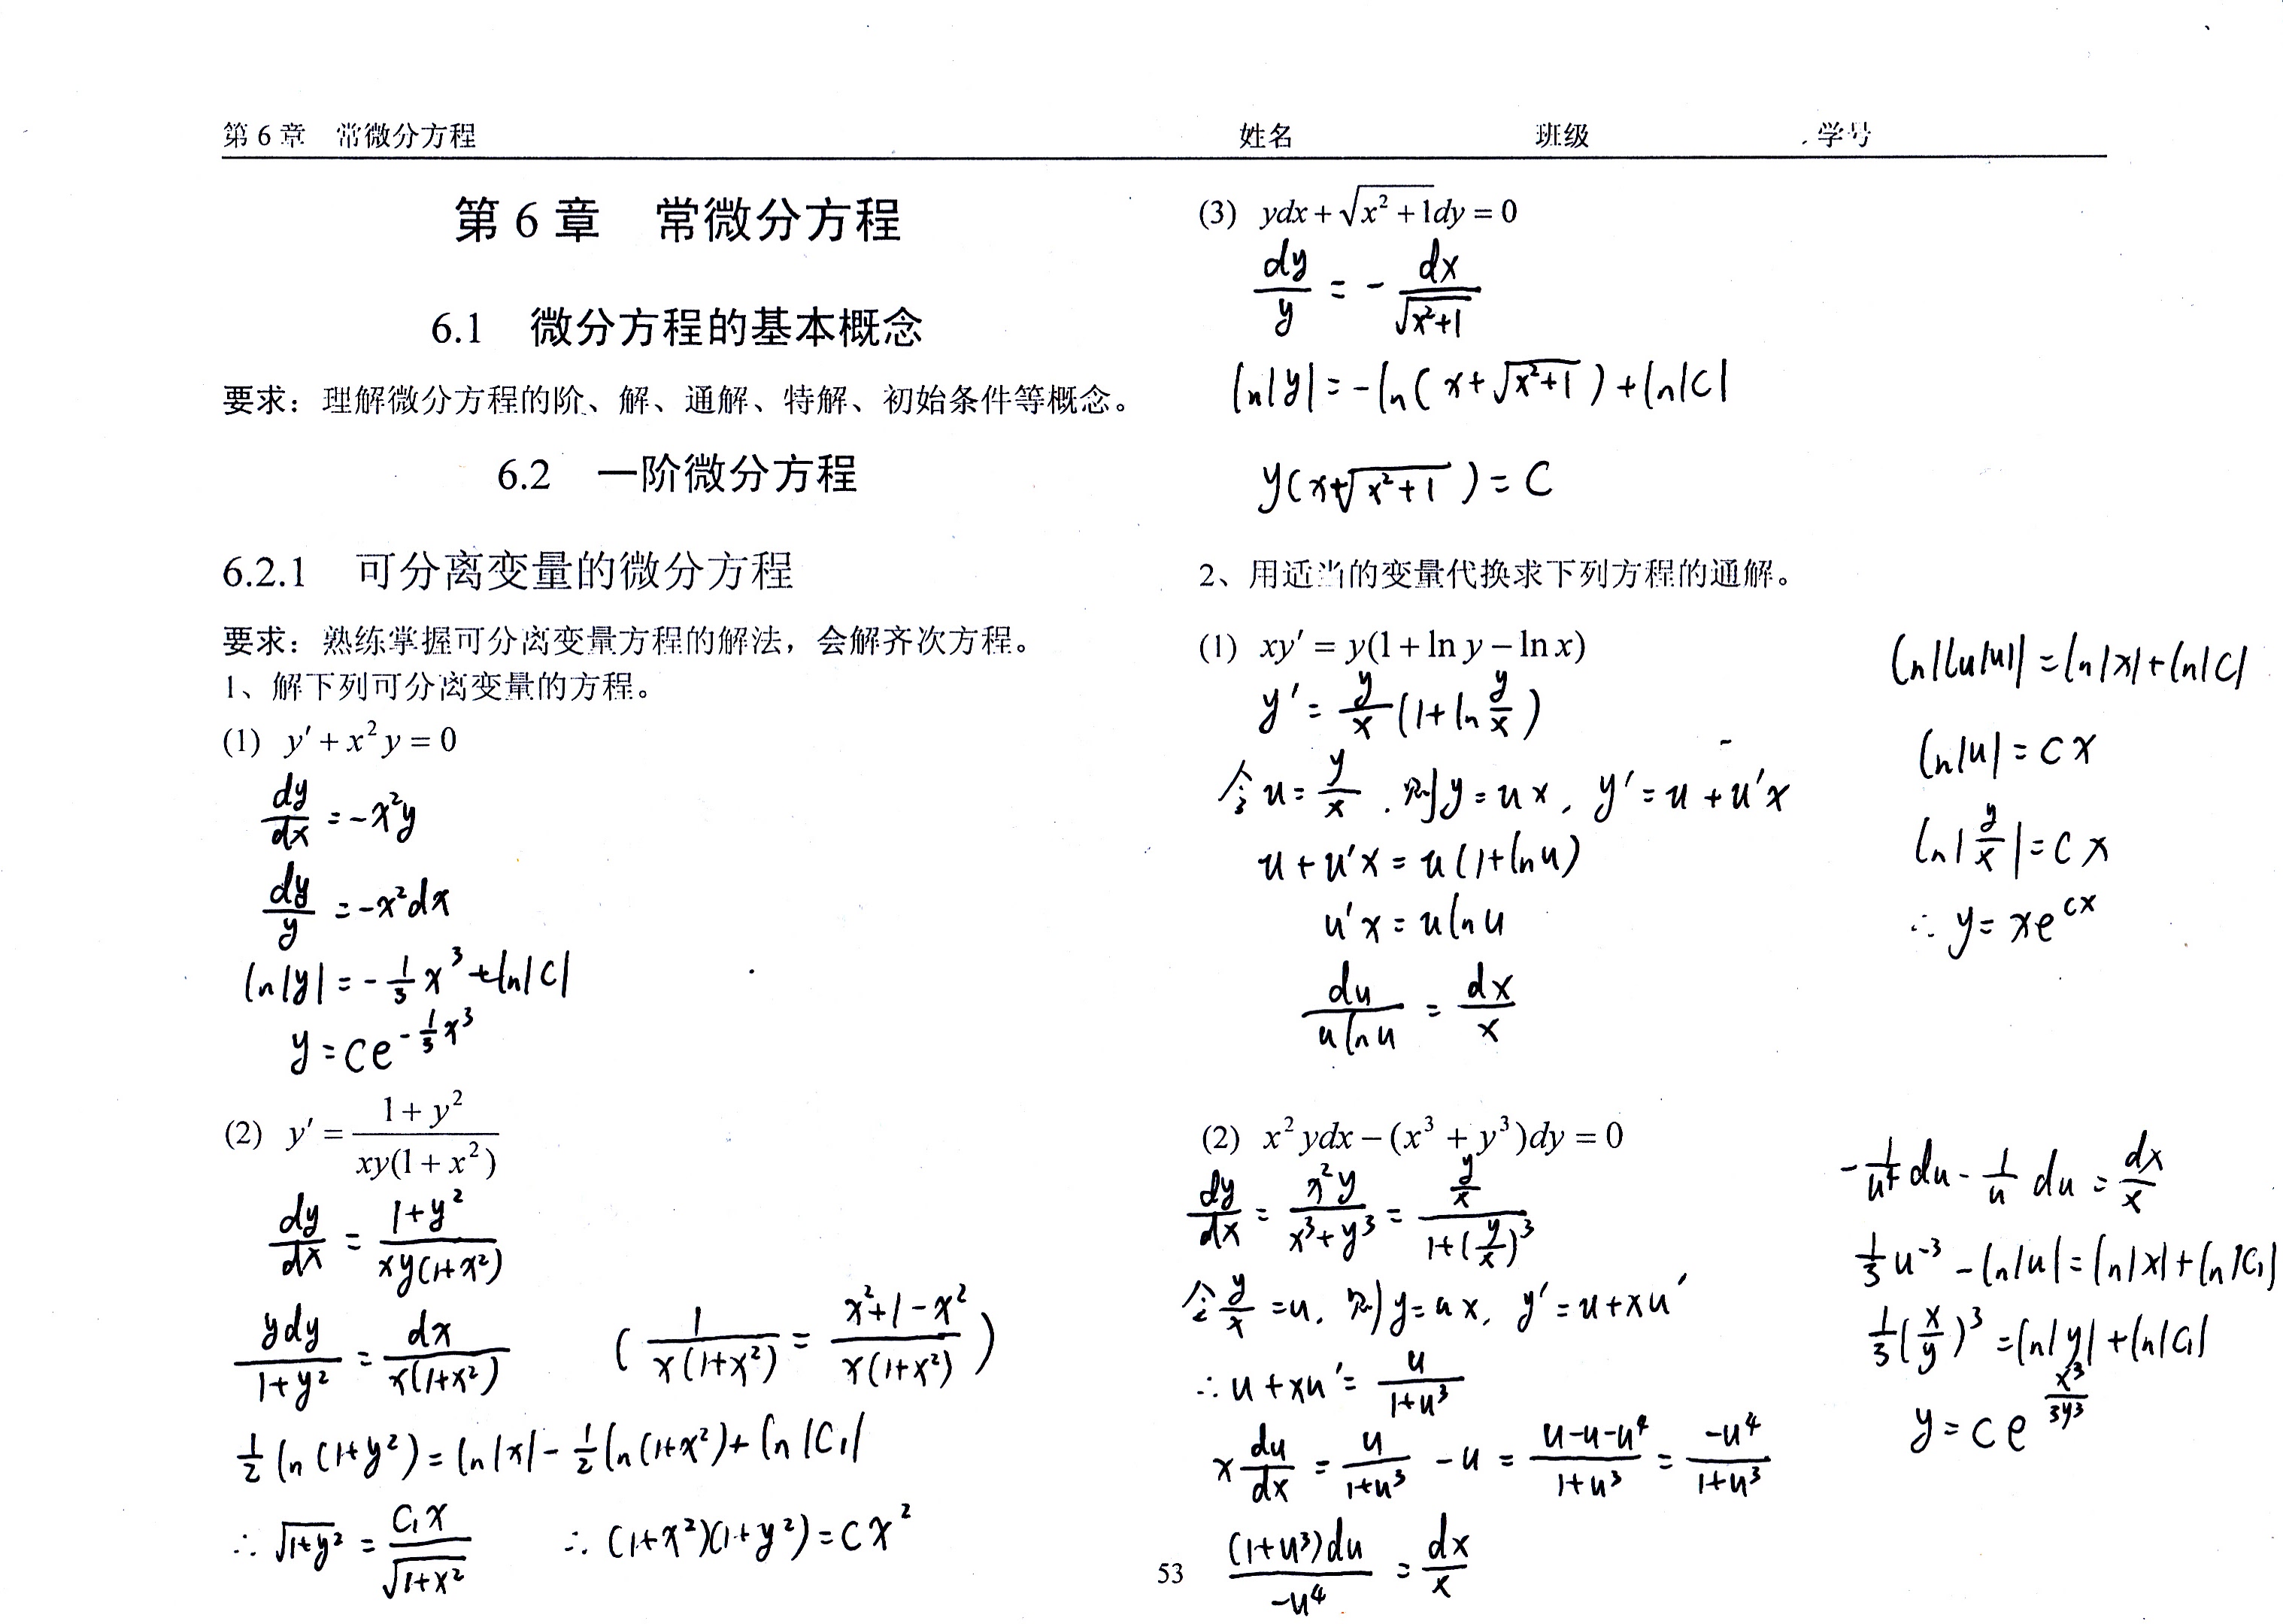 第 6 章 常微分方程 姓名 班级 学号
第 6 章 常微分方程
6.1 微分方程的基本概念
要求：理解微分方程的阶、解、通解、特解、初始条件等概念。
6.2 一阶微分方程
6.2.1 可分离变量的微分方程
要求：熟练掌握可分离变量方程的解法，会解齐次方程。
1、解下列可分离变量的方程。
(1) y′ + x²y = 0
dy/dx = -x²y
dy/y = -x²dx
ln|y| = -1/3 x³ + ln|C|
y = Ce^(-1/3 x³)
(2) y′ = (1+y²)/(xy(1+x²))
dy/dx = (1+y²)/(xy(1+x²))
ydy/(1+y²) = dx/(x(1+x²)) ( 1/(x(1+x²)) = (x²+1-x²)/(x(1+x²)) )
1/2 ln(1+y²) = ln|x| - 1/2 ln(1+x²) + ln|C₁|
∴ √(1+y²) = C₁x/√(1+x²) ∴ (1+x²)(1+y²) = Cx²
(3) ydx + √(x²+1)dy = 0
dy/y = - dx/√(x²+1)
ln|y| = -ln(x+√(x²+1)) + ln|C|
y(x+√(x²+1)) = C
2、用适当的变量代换求下列方程的通解。
(1) xy′ = y(1 + ln y − ln x)
y′ = y/x (1+ln y/x)
令 u = y/x . 则 y = ux, y′ = u + u′x
u + u′x = u(1+ln u)
u′x = u ln u
du/(u ln u) = dx/x
ln|ln|u|| = ln|x| + ln|C|
ln|u| = Cx
ln|y/x| = Cx
∴ y = xe^(cx)
(2) x²ydx − (x³ + y³)dy = 0
dy/dx = x²y/(x³+y³) = (y/x)/(1+(y/x)³)
令 y/x = u, 则 y = ux, y′ = u + xu′
∴ u + xu′ = u/(1+u³)
x du/dx = u/(1+u³) - u = (u-u-u⁴)/(1+u³) = -u⁴/(1+u³)
(1+u³)du/(-u⁴) = dx/x
-1/u⁴ du - 1/u du = dx/x
1/3 u⁻³ - ln|u| = ln|x| + ln|C₁|
1/3 (x/y)³ = ln|y| + ln|C₁|
y = Ce^(x³/3y³)
53